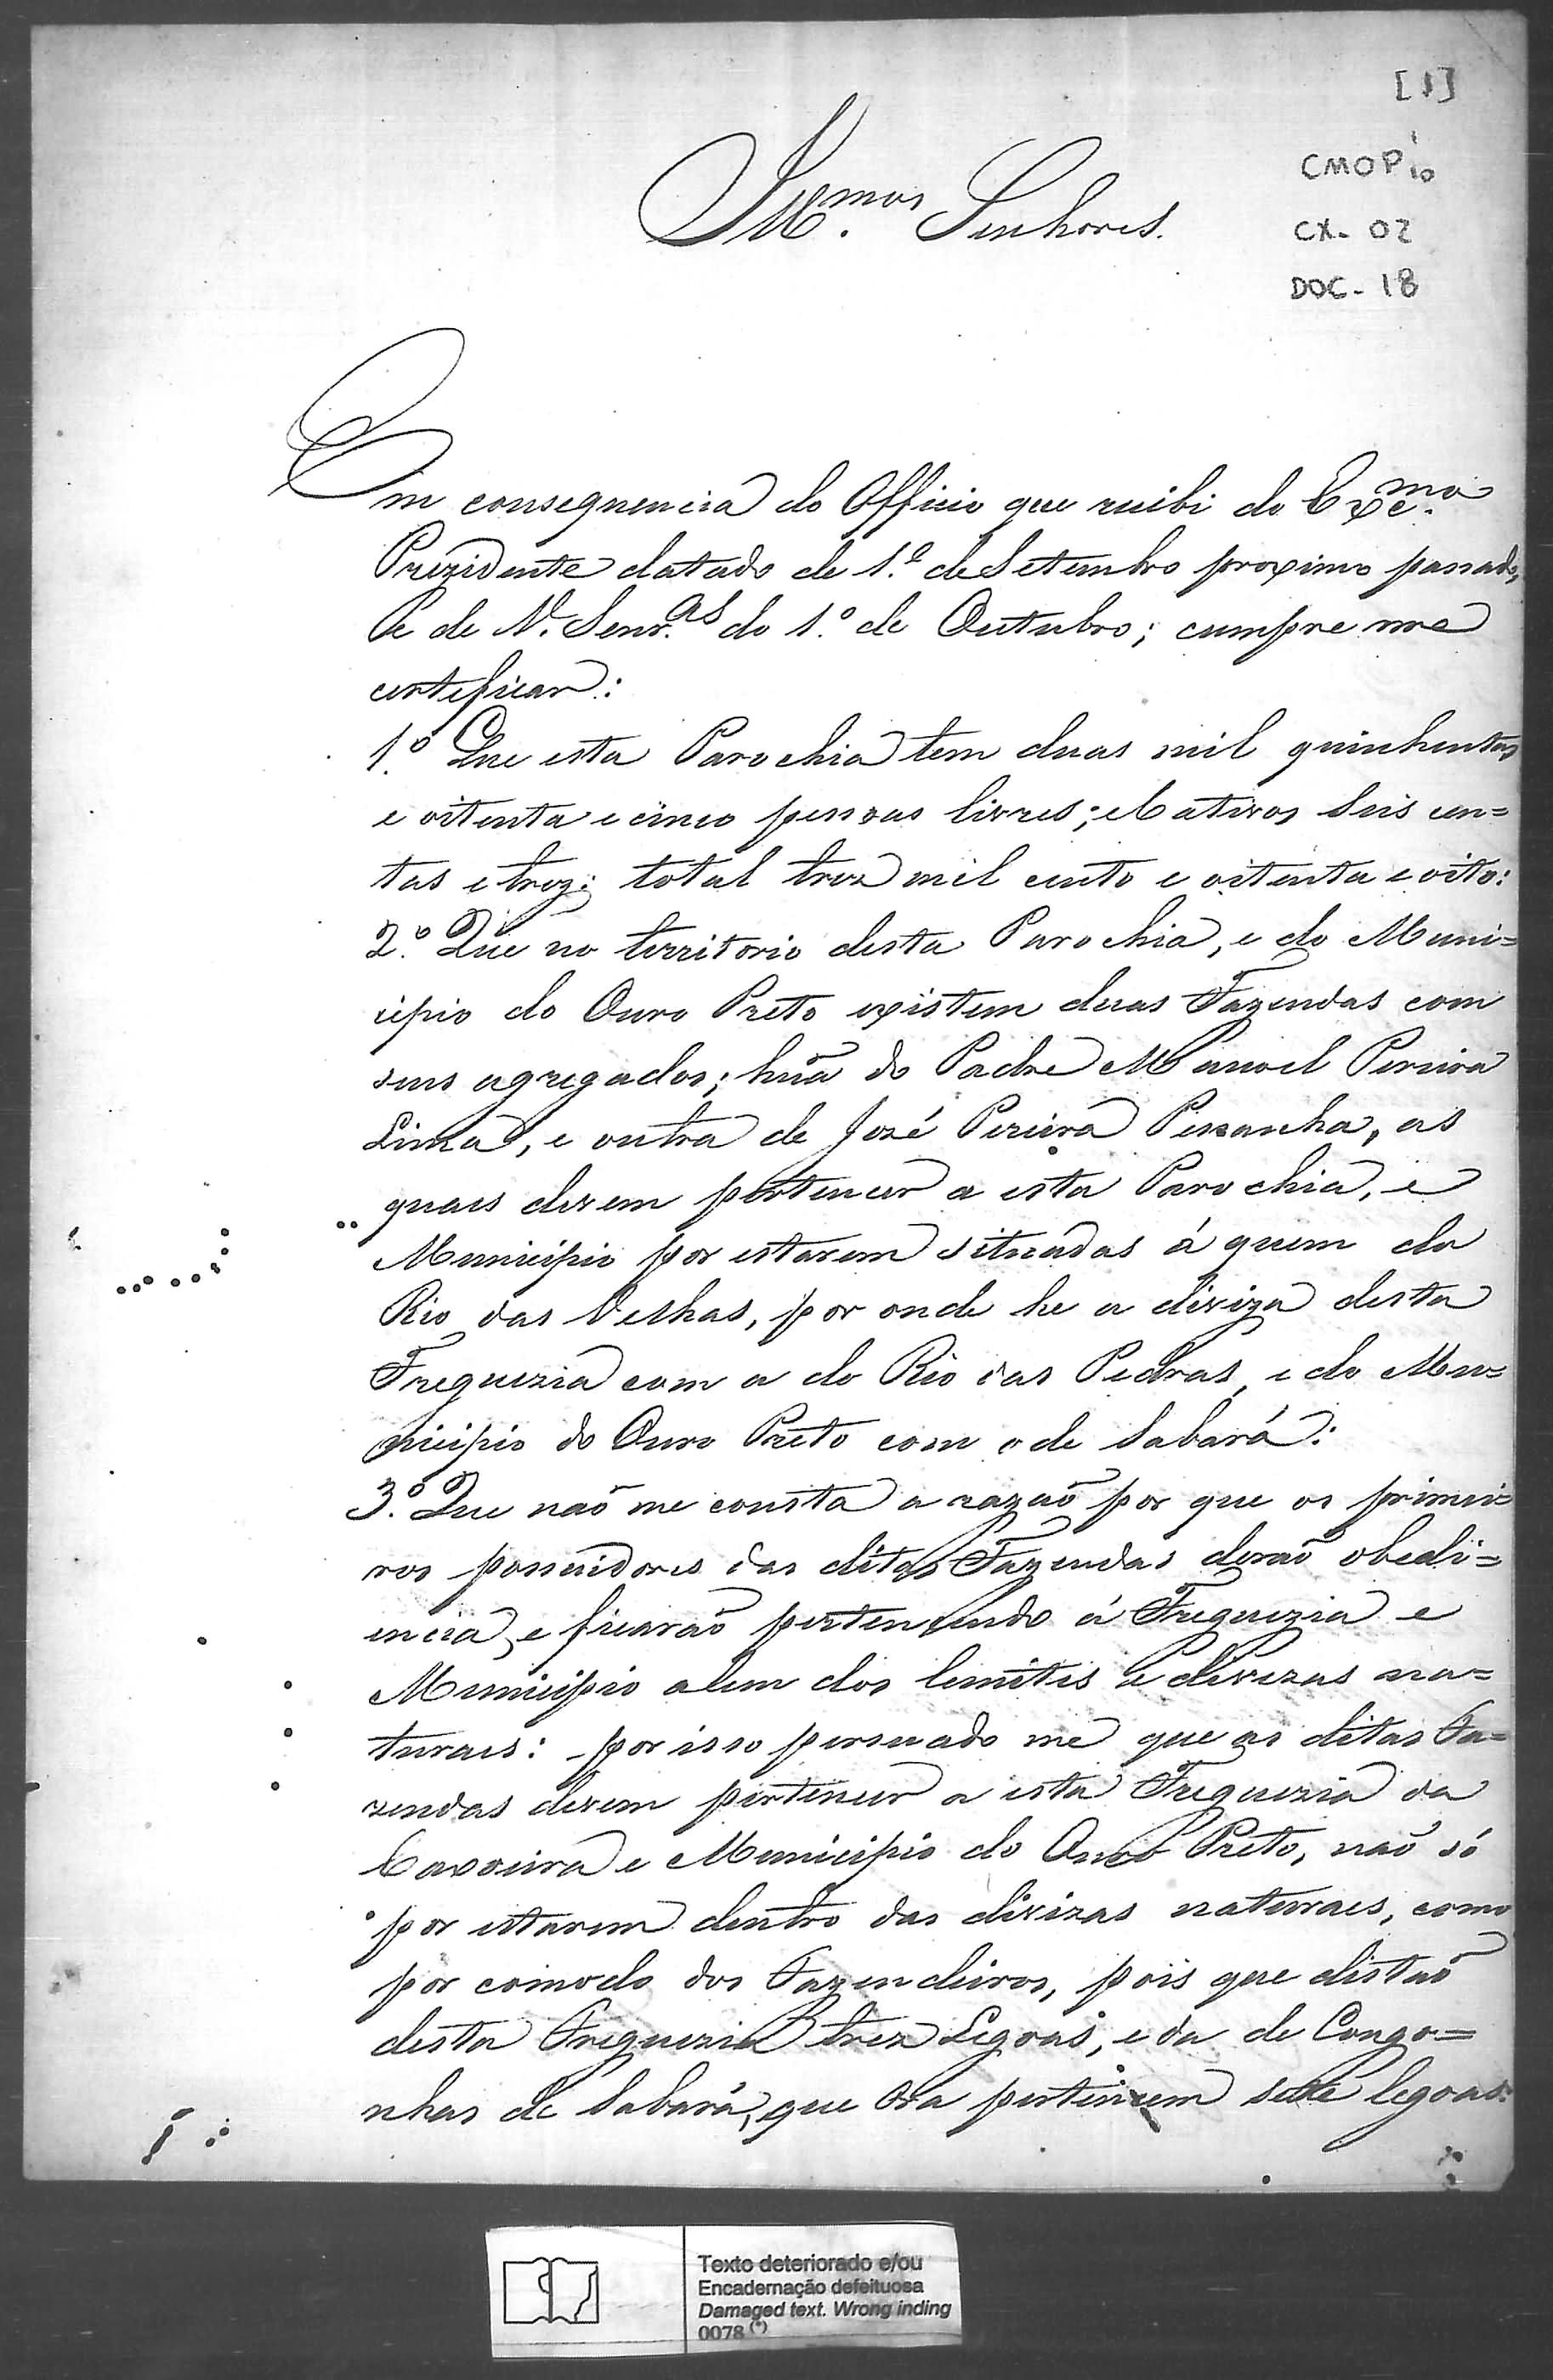 [1]
CMOP
CX- 02
DOC- 18
Ill.mos Senhores.
Em consequencia do Officio que recibi do Exc.mo
Prezidente datado de 1.º de Setembro proximo passado,
e de V. Senr.as do 1.º de Outubro; cumpre me
certeficar:
1.º Que esta Parochia tem duas mil quinhentas
e oitenta e cinco pessoas livres; e Cativos Seis cen=
tas e trez: total trez mil cento e oitenta e oito:
2.º Que no territorio desta Parochia, e do Muni=
cipio do Ouro Preto existem duas Fazendas com
seus agregados; hũa do Padre Manoel Pereira
Lima, e outra de José Pereira Pessanha, as
quaes devem pertencer a esta Parochia, e
Municipio por estarem situadas á quem do
Rio das Velhas, por onde he a diviza desta
Freguezia com a do Rio das Pedras, e do Mu=
nicipio do Ouro Preto com o de Sabará:
3.º Que naõ me consta a razaõ por que os primei=
ros possuidores das ditas Fazendas deraõ obedi=
encia, e ficaraõ pertencendo á Freguezia e
Municipio alem dos lemites e divizas na=
turaes: por isso persuado me que as ditas Fa=
zendas devem pertencer a esta Freguezia da
Caxoeira e Municipio do Ouro Preto, naõ só
por estarem dentro das divizas naturaes, como
por comodo dos Fazendeiros, pois que distaõ
desta Freguezia trez Legoas, e da de Congo=
nhas de Sabará, que ora pertencem sete legoas:
Texto deteriorado e/ou
Encadernação defeituosa
Damaged text. Wrong inding
0078 (*)